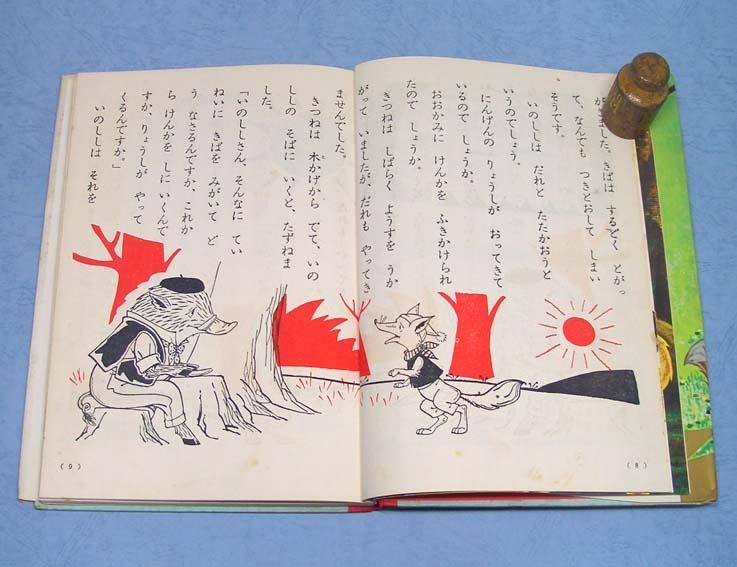 がました。きばは するどく とがっ
て、なんでも つきとおして しまい
そうです。
いのししは だれと たたかおうと
いうのでしょう。
にんげんの りょうしが おってきて
いるので しょうか。
おおかみに けんかを ふきかけられ
たので しょうか。
きつねは しばらく ようすを うか
がって いましたが、だれも やってき
ませんでした。
きつねは 木かげから でて、いの
ししの そばに いくと、たずねま
した。
「いのししさん、そんなに てい
ねいに きばを みがいて ど
う なさるんですか、これか
ら けんかを しに いくんで
すか、りょうしが やって
くるんですか。」
いのししは それを
(8)
(9)